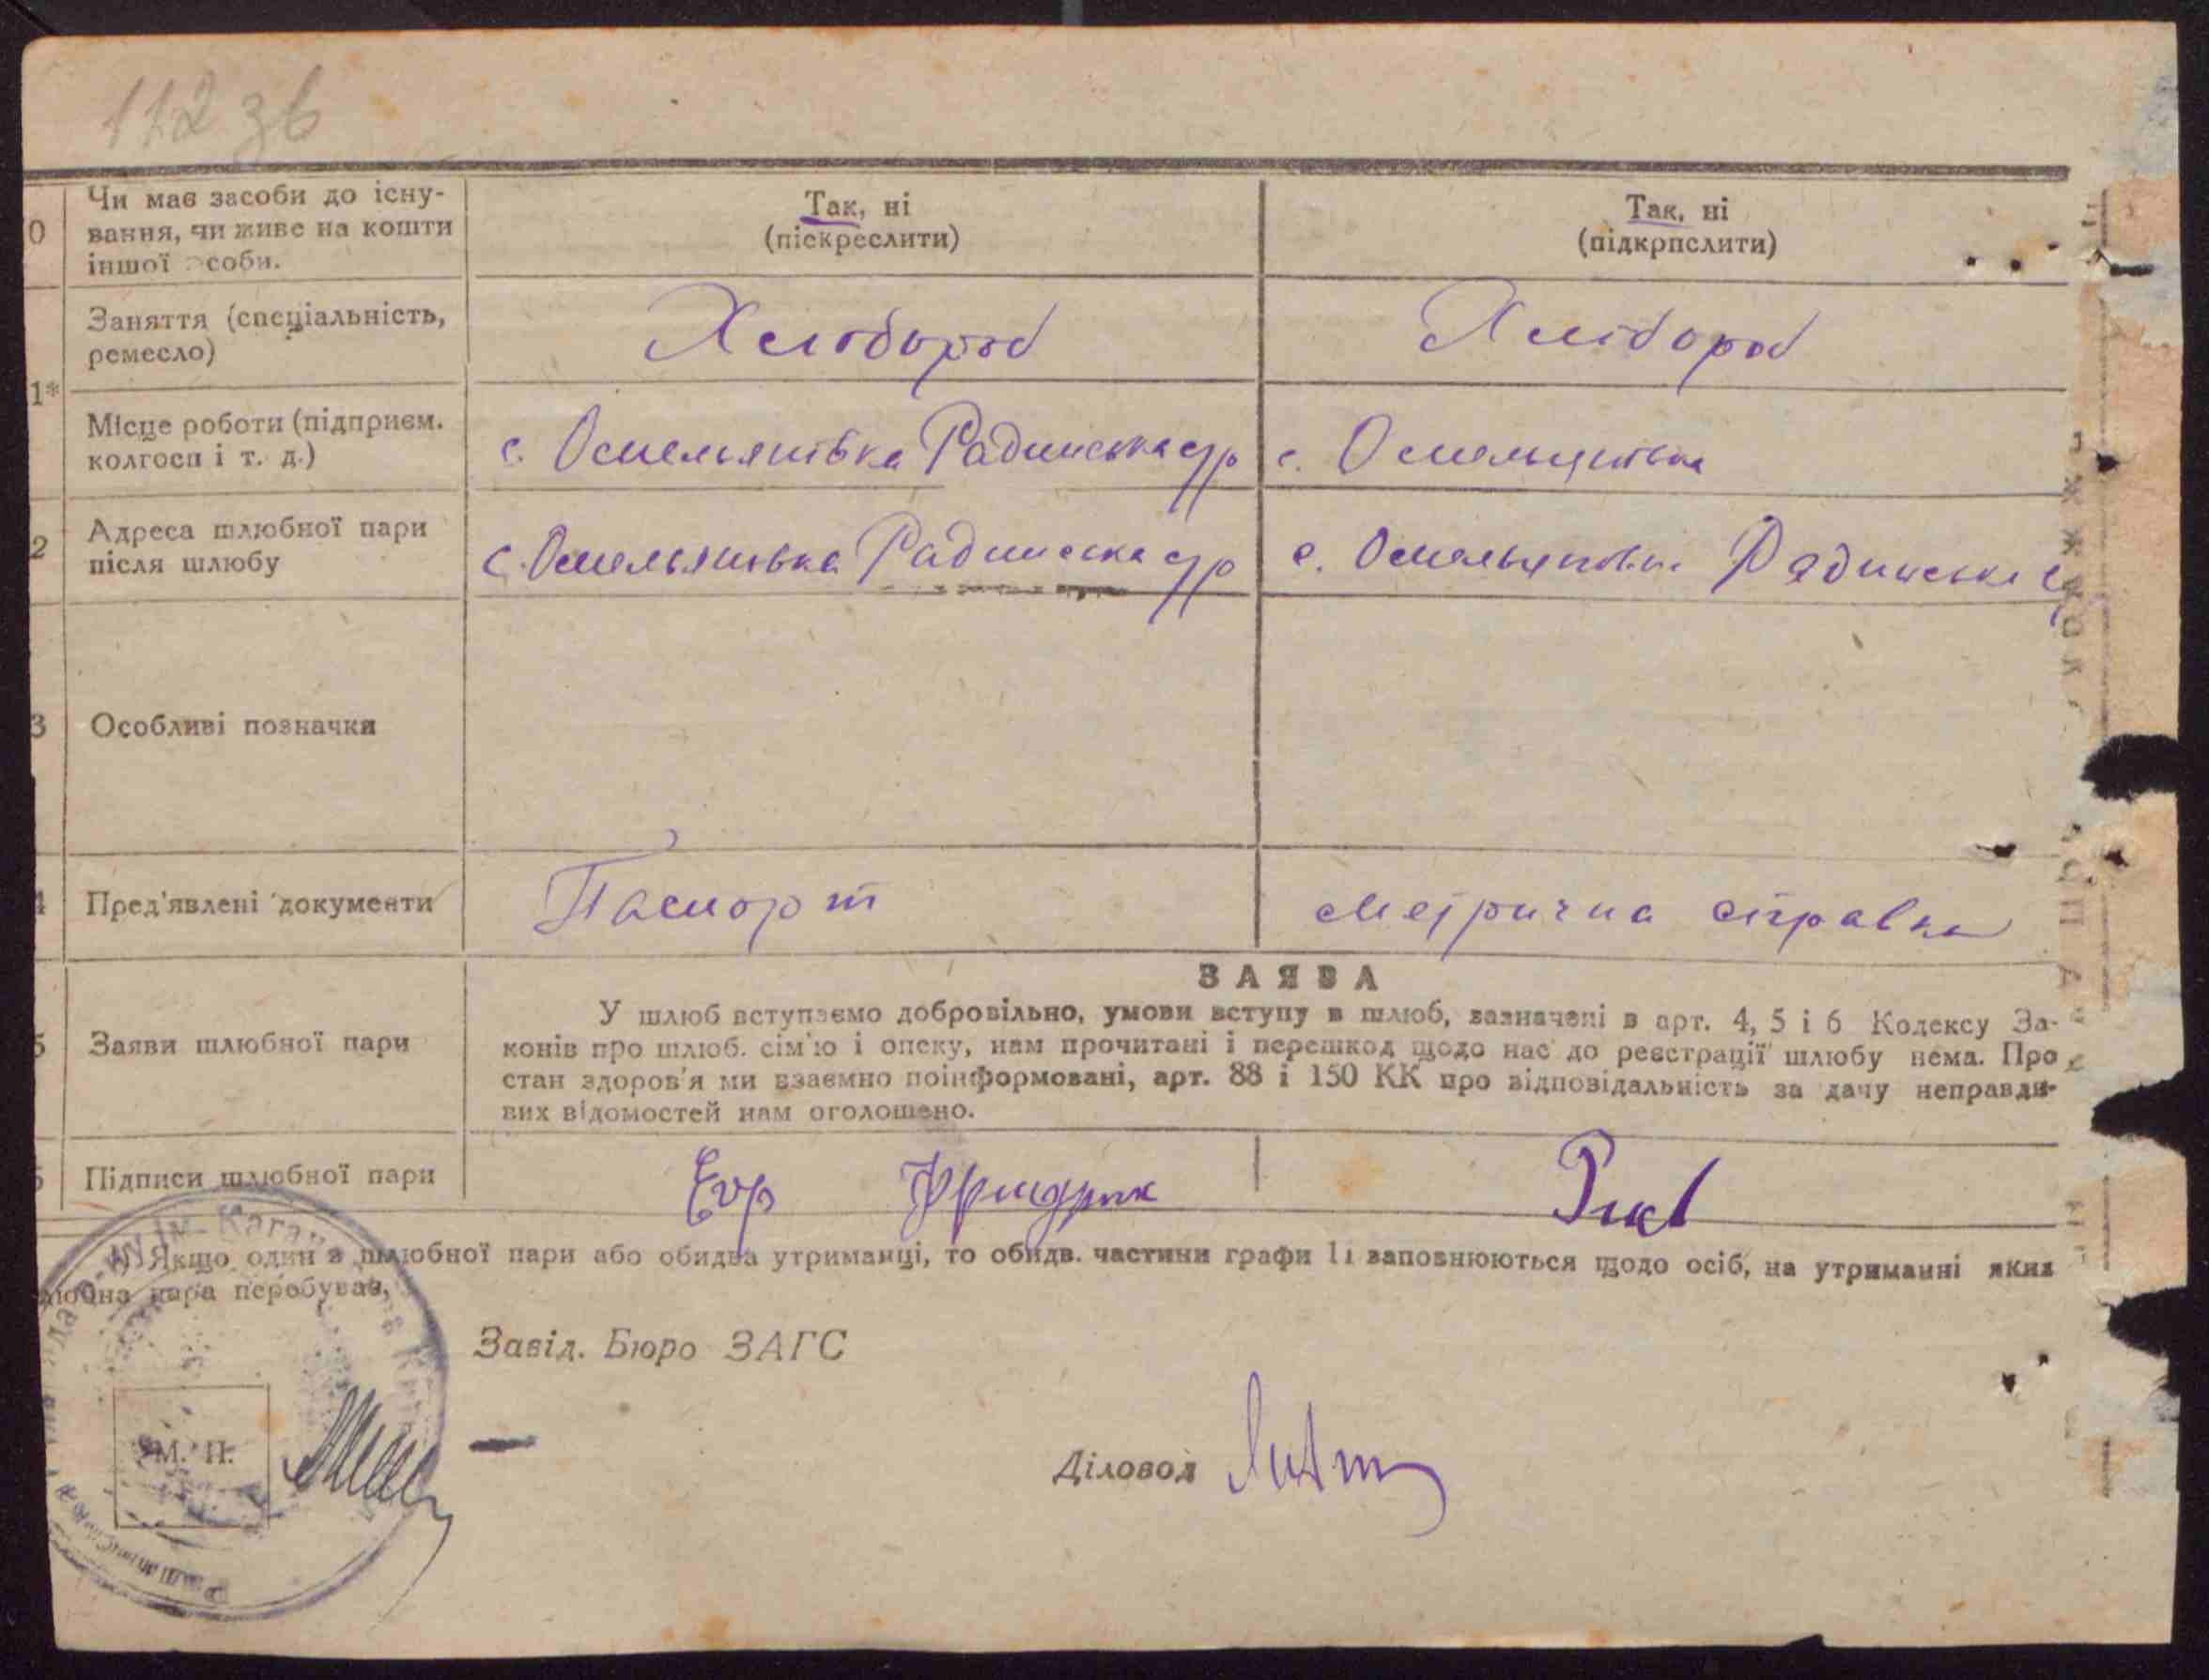 112 зв
0 Чи має засоби до існу-
вання, чи живе на кошти
іншої особи.
Так, ні
(піскреслити)
Так, ні
(підкрпслити)
1*
Заняття (спеціальність,
ремесло)
Хлібороб
Хлібороб
Місце роботи (підприєм.
колгосп і т. д.)
с. Омельянівка Радинська с/р
с. Омельянівка
2 Адреса шлюбної пари
після шлюбу
с. Омельянівка Радинська с/р
с. Омельянівка Радинська с
3 Особливі позначки
4 Пред'явлені документи
Паспорт
Метрична справка
ЗАЯВА
5 Заяви шлюбної пари
У шлюб вступаємо добровільно, умови вступу в шлюб, зазначені в арт. 4, 5 і 6 Кодексу За-
конів про шлюб. сім'ю і опеку, нам прочитані і перешкод щодо нас до реєстрації шлюбу нема. Про
стан здоров'я ми взаємно поінформовані, арт. 88 і 150 КК про відповідальність за дачу неправди-
вих відомостей нам оголошено.
6 Підписи шлюбної пари
Якщо один з шлюбної пари або обидва утриманці, то обидв. частини графи 11 заповнюються щодо осіб, на утриманні яких
шлюбна пара перебуває,
Завід. Бюро ЗАГС
М. П.
Діловод